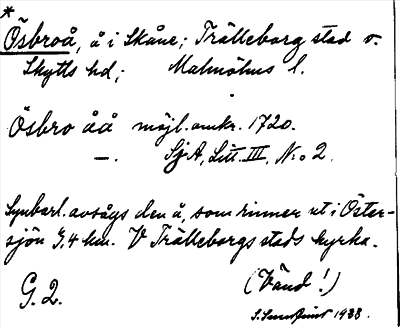 *
Ösbroå, å i Skåne; Trälleborg stad o.
Skytts hd; Malmöhus l.
Ösbro åå möjl. omkr. 1720.
—. SjA, Litt. III, N:o 2.
Synbarl. avsågs den å, som rinner ut i Öster-
sjön 3,4 km. V Trälleborgs stads kyrka.
G. 2. (Vänd!)
1938.